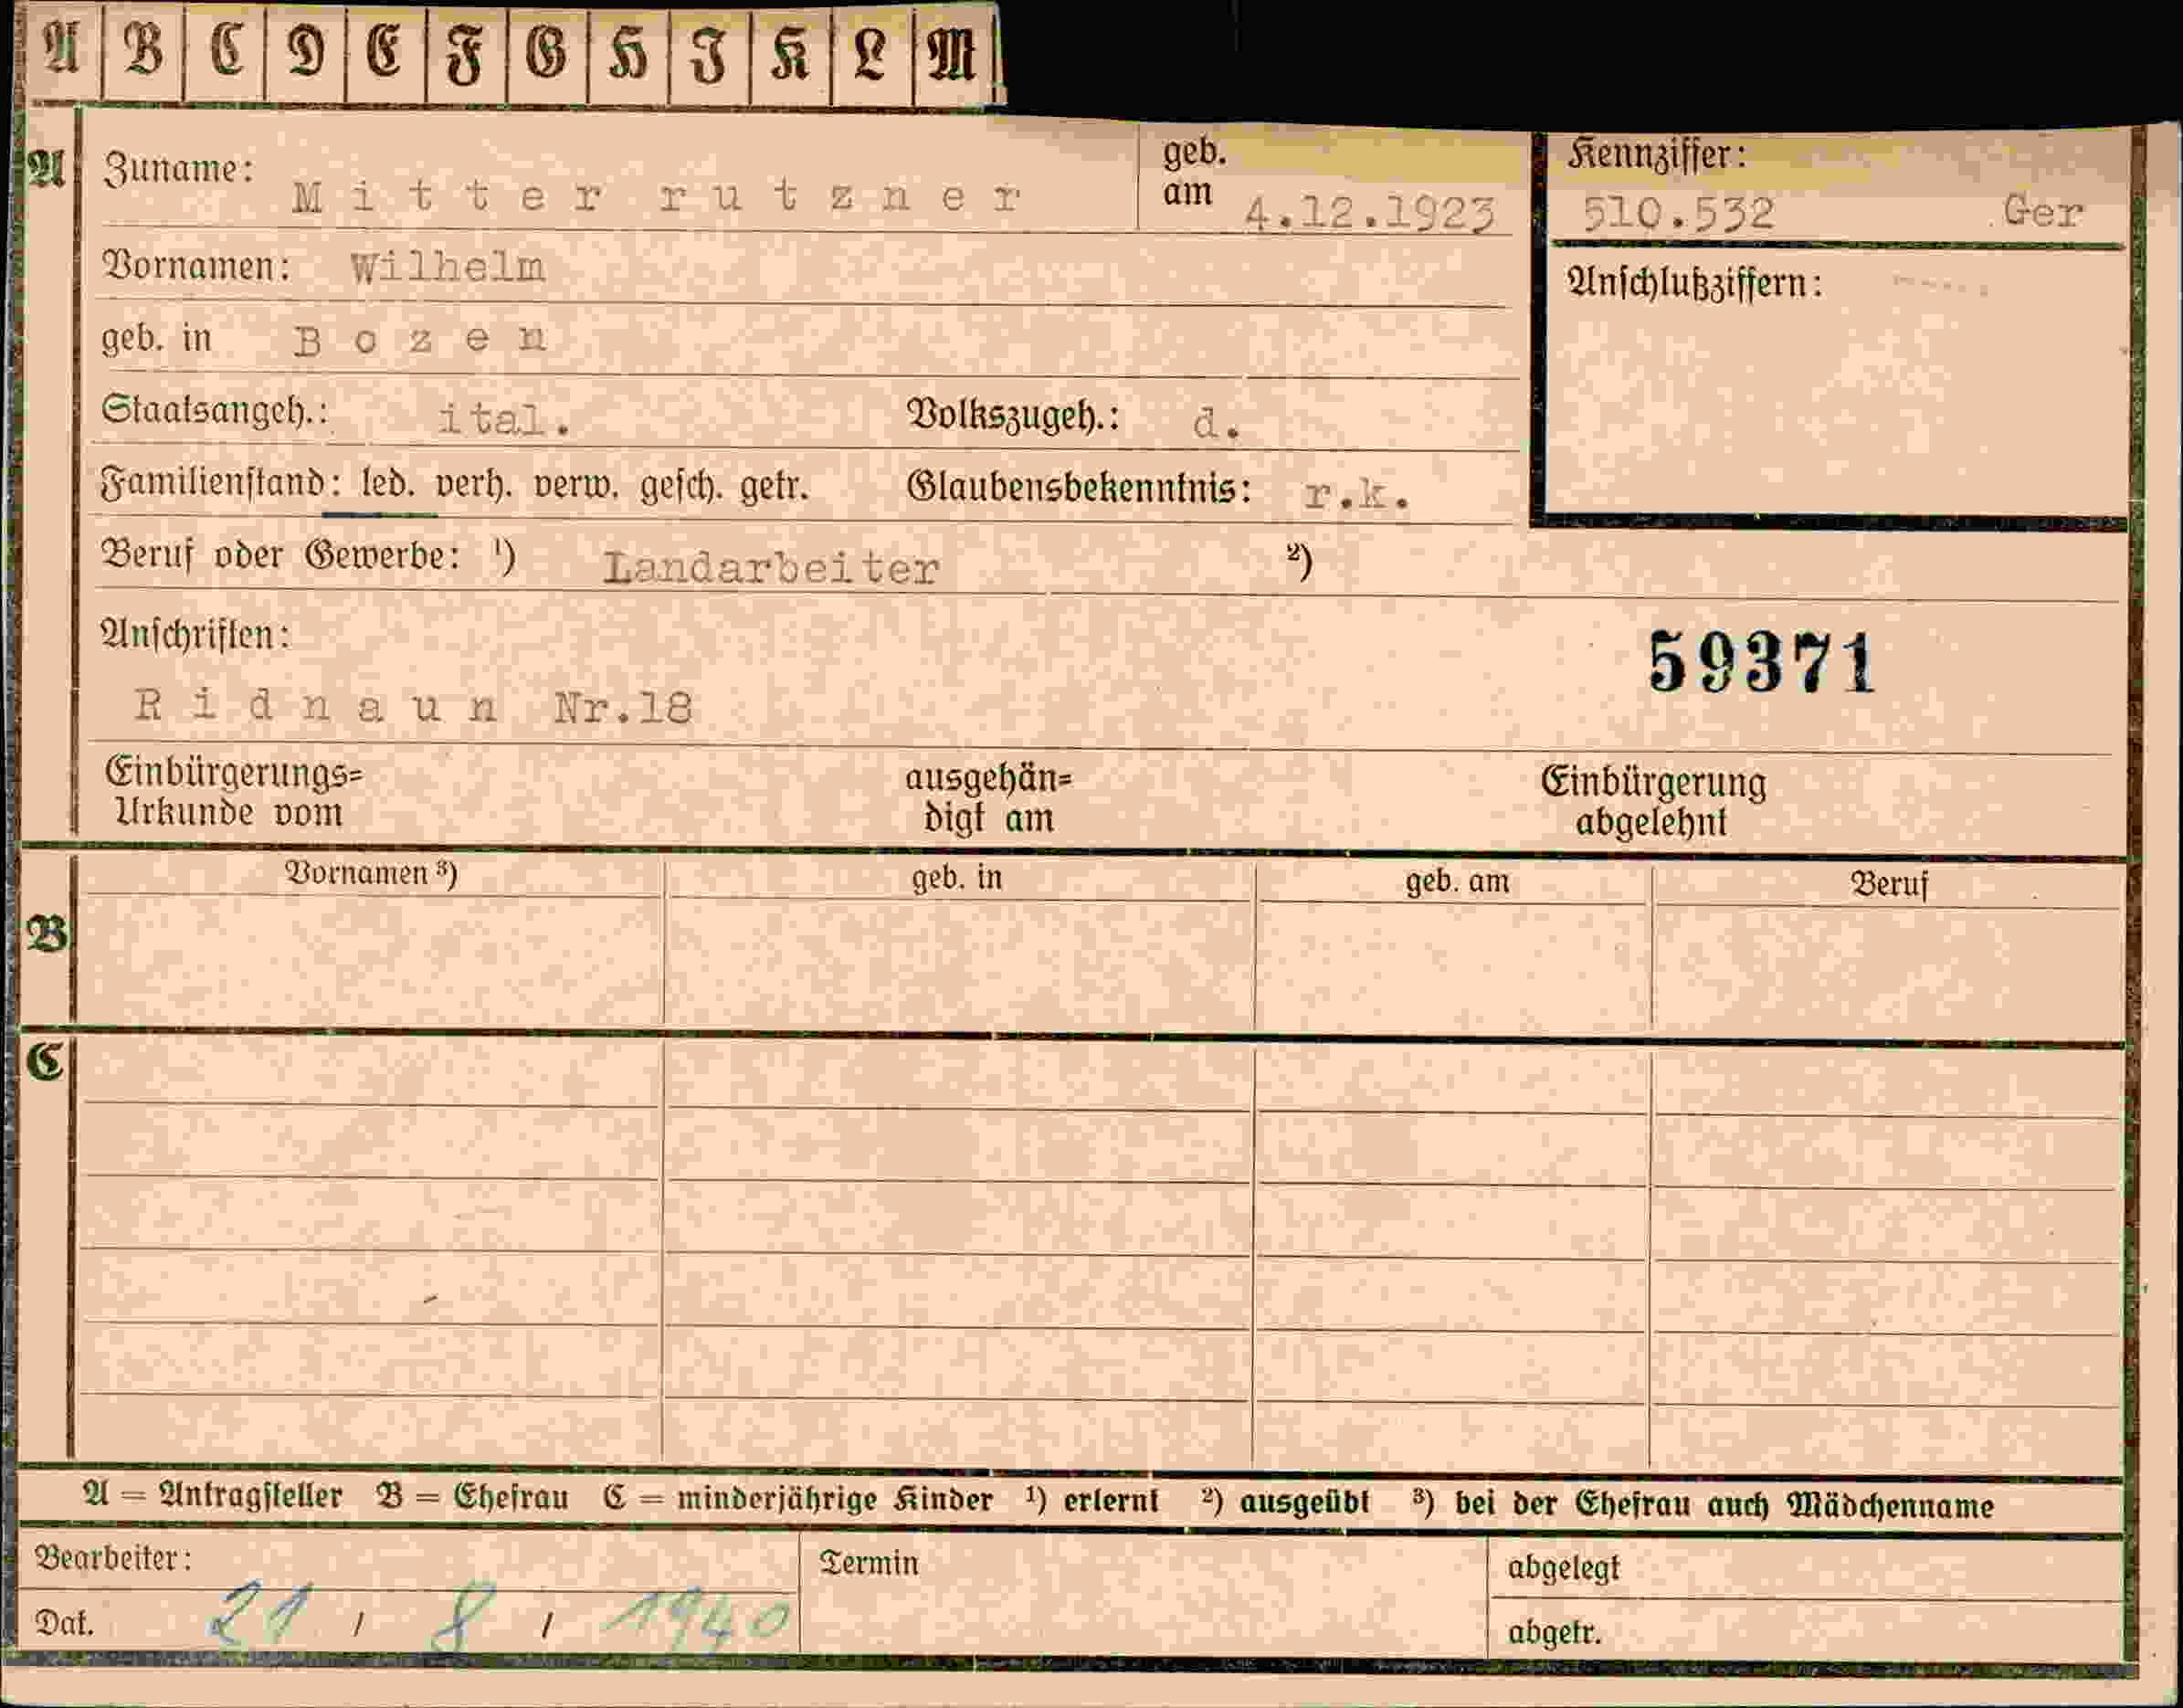 A B C D E F G H I K L M
A
Zuname: Mitterrutzner geb. am 4.12.1923
Kennziffer:
510.532 Ger
Vornamen: Wilhelm
Anschlußziffern:
geb. in Bozen
Staatsangeh.: ital. Volkszugeh.: d.
Familienstand: led. verh. verw. gesch. getr. Glaubensbekenntnis: r.k.
Beruf oder Gewerbe: ¹) Landarbeiter ²)
Anschriften:
59371
Ridnaun Nr.18
Einbürgerungs= ausgehän= Einbürgerung
Urkunde vom digt am abgelehnt
Vornamen ³) geb. in geb. am Beruf
B
C
A = Antragsteller B = Ehefrau C = minderjährige Kinder ¹) erlernt ²) ausgeübt ³) bei der Ehefrau auch Mädchenname
Bearbeiter: Termin abgelegt
Dat. 21 / 8 / 1940 abgetr.